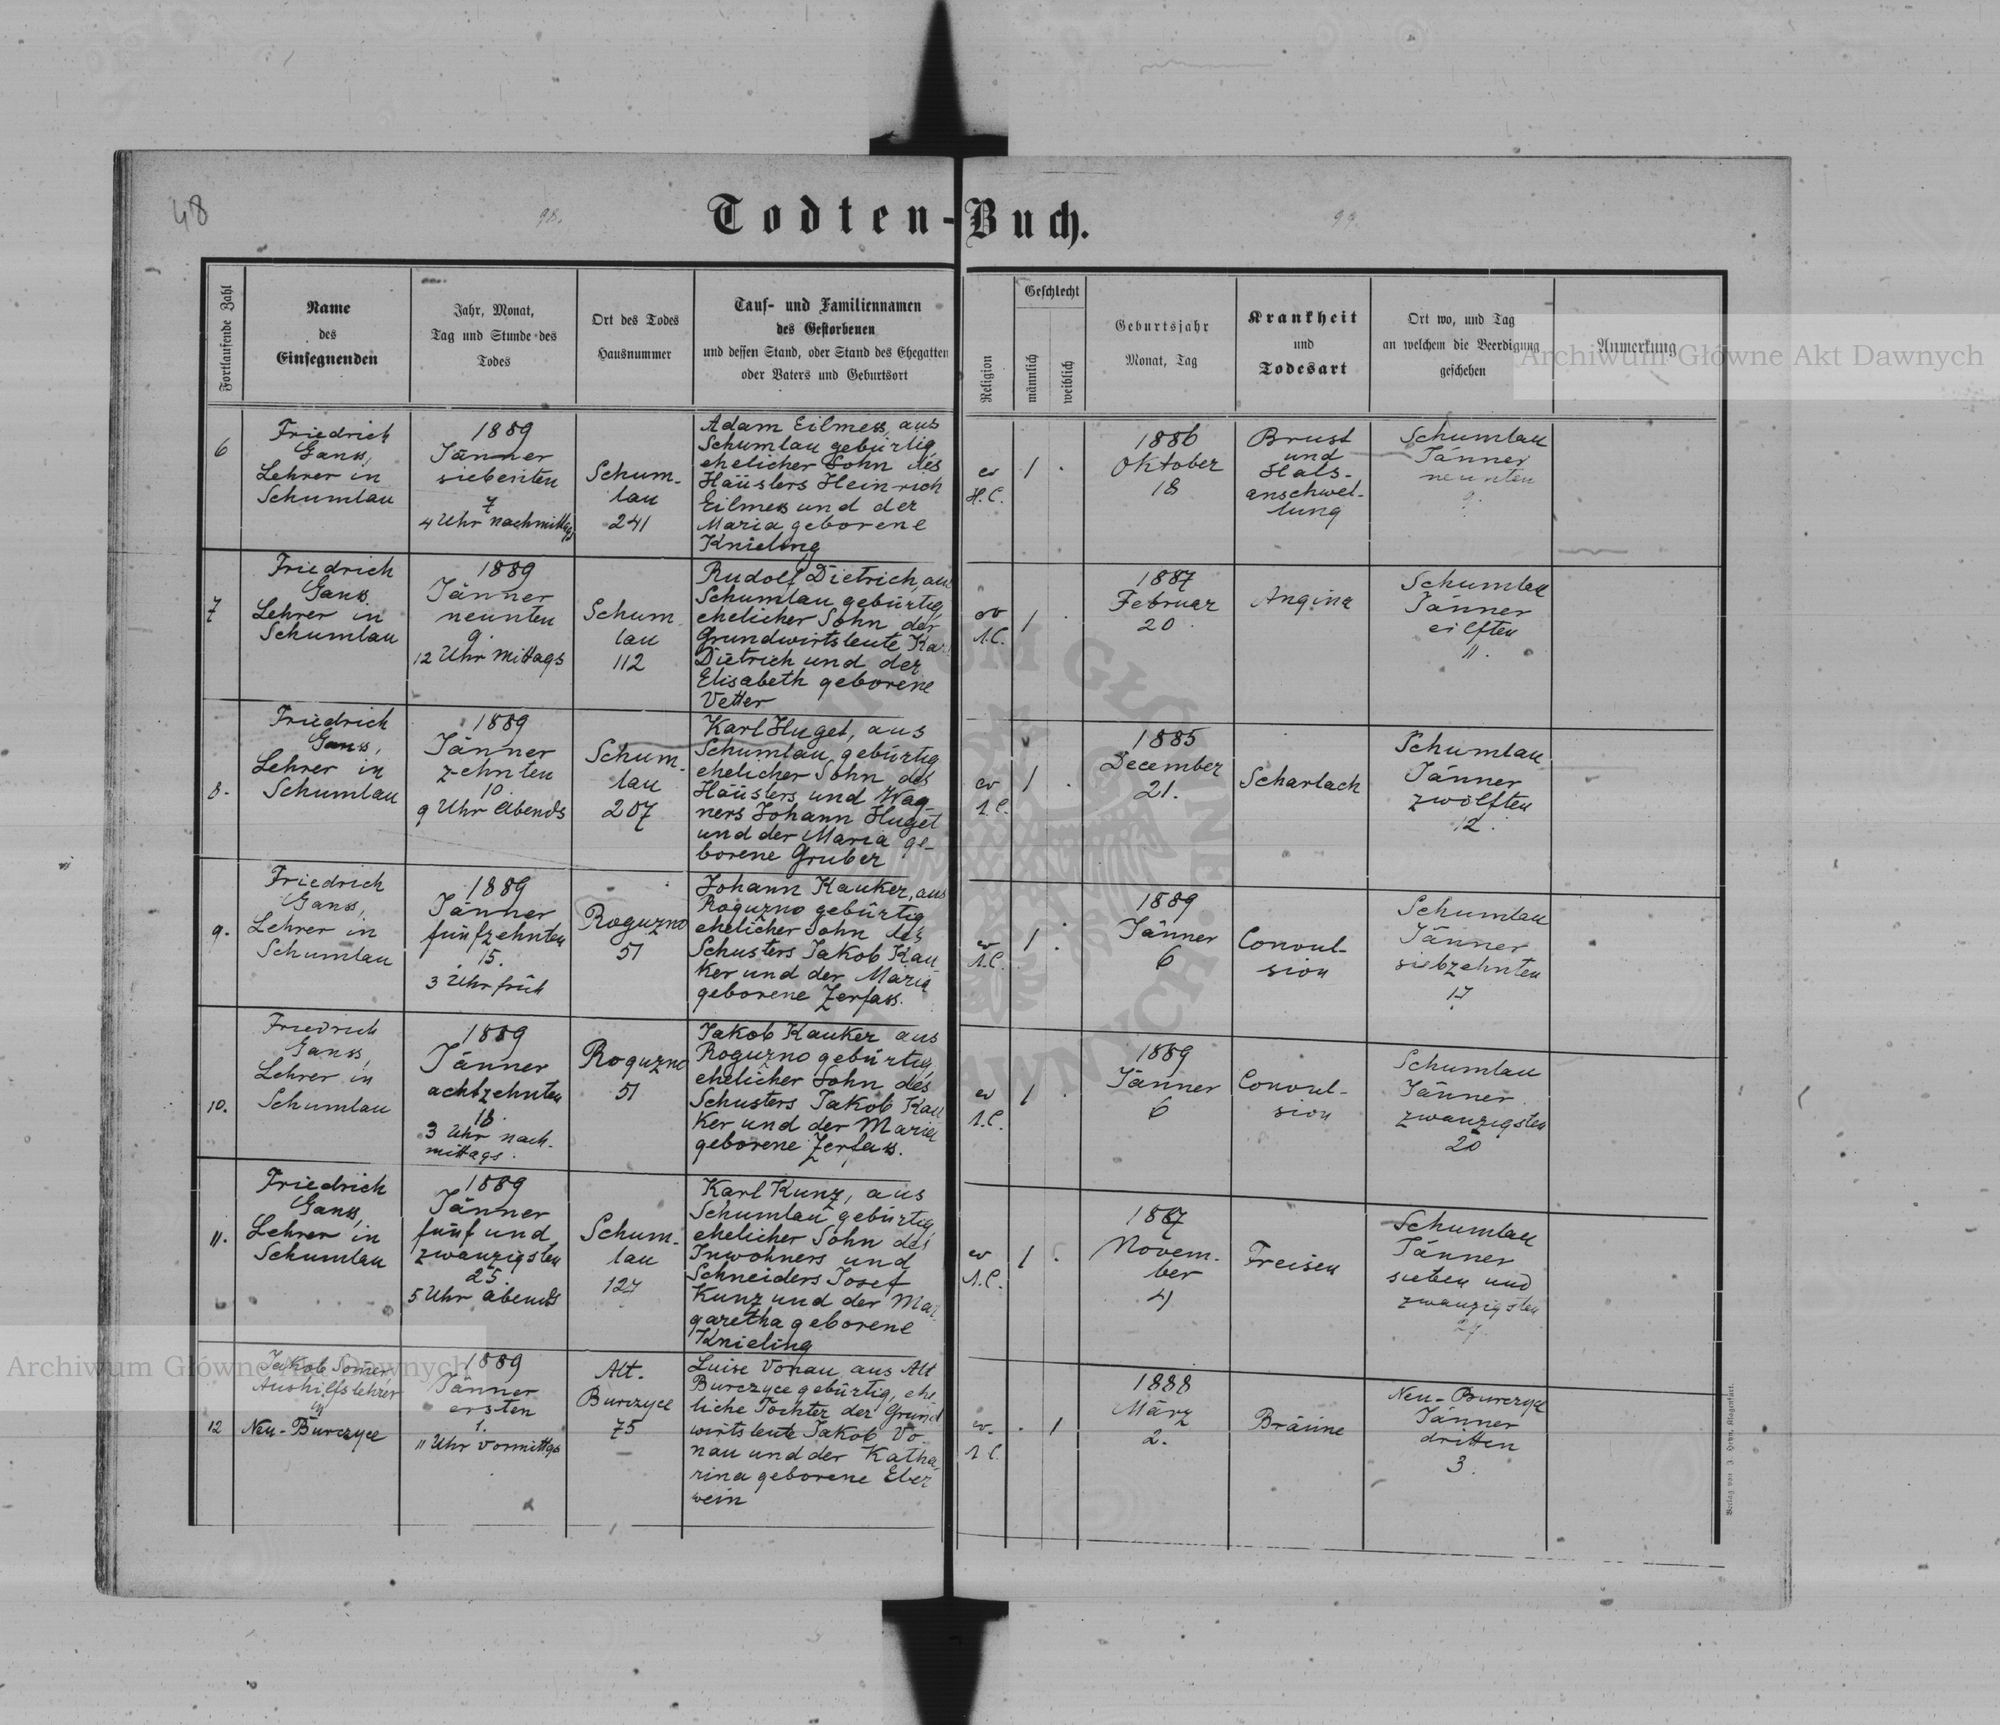 48
98.
99.
Todten-Buch.
Fortlaufende Zahl
Name
des
Einsegnenden
Jahr, Monat,
Tag und Stunde des
Todes
Ort des Todes
Hausnummer
Tauf- und Familiennamen
des Gestorbenen
und dessen Stand, oder Stand des Ehegatten
oder Vaters und Geburtsort
Religion
Geschlecht
männlich
weiblich
Geburtsjahr
Monat, Tag
Krankheit
und
Todesart
Ort wo, und Tag
an welchem die Beerdigung
geschehen
Anmerkung
Archiwum Główne Akt Dawnych
6
Friedrich
Ganss,
Lehrer in
Schumlau
1889
Jänner
siebenten
7
4 Uhr nachmittgs
Schum-
lau
241
Adam Eilmess, aus
Schumlau gebürtig
ehelicher Sohn des
Häuslers Heinrich
Eilmess und der
Maria geborene
Knieling
ev
H.C.
1
1886
Oktober
18
Brust
und
Hals-
anschwel-
lung
Schumlau
Jänner
neunten
9.
7
Friedrich
Ganss
Lehrer in
Schumlau
1889
Jänner
neunten
9.
12 Uhr Mittags
Schum
lau
112
Rudolf Dietrich, aus
Schumlau gebürtig,
ehelicher Sohn der
Grundwirtsleute Ka
Dietrich und der
Elisabeth geborene
Vetter
ev
A.C.
1
1887
Februar
20
Angina
Schumlau
Jänner
eilften
11.
8.
Friedrich
Ganss,
Lehrer in
Schumlau
1889
Jänner
zehnten
10.
9 Uhr Abends
Schum-
lau
207
Karl Huget, aus
Schumlau gebürtig
ehelicher Sohn des
Häuslers und Wag-
ners Johann Huget
und der Maria ge-
borene Gruber
ev
A.C.
1
1885
December
21.
Scharlach
Schumlau
Jänner
zwölften
12.
9.
Friedrich
Ganss,
Lehrer in
Schumlau
1889
Jänner
fünfzehnten
15.
3 Uhr früh
Roguzno
51
Johann Kauker, aus
Roguzno gebürtig
ehelicher Sohn des
Schusters Jakob Kau
ker und der Maria
geborene Zerfass.
ev
A.C.
1
1889
Jänner
6
Convul-
sion
Schumlau
Jänner
siebzehnten
17
10.
Friedrich
Ganss,
Lehrer in
Schumlau
1889
Jänner
achtzehnten
18.
3 Uhr nach-
mittags.
Roguzno
51
Jakob Kauker aus
Roguzno gebürtig,
ehelicher Sohn des
Schusters Jakob Kau
ker und der Maria
geborene Zerfass.
ev
A.C.
1
1889
Jänner
6
Convul-
sion
Schumlau
Jänner
zwanzigsten
20
11.
Friedrich
Ganss,
Lehrer in
Schumlau
1889
Jänner
fünf und
zwanzigsten
25.
5 Uhr Abends
Schum-
lau
127
Karl Kunz, aus
Schumlau gebürtig,
ehelicher Sohn des
Inwohners und
Schneiders Josef
Kunz und der Mar
garetha geborene
Knieling
ev
A.C.
1
1887
Novem-
ber
4
Freisen
Schumlau
Jänner
sieben und
zwanzigsten
27.
12
Jakob Somer
Aushilfslehrer
in
Neu-Burczyce
1889
Jänner
ersten
1.
11 Uhr Vormittgs
Alt.
Burczyce
75
Luise Vonau aus Alt
Burczyce gebürtig, ehe
liche Tochter der Grund
wirtsleute Jakob Vo-
nau und der Katha
rina geborene Eber
wein
ev.
A.C.
1
1888
März
2.
Bräune
Neu-Burczyce
Jänner
dritten
3.
Archiwum Główne Akt Dawnych
Verlag von J. Heyn, Klagenfurt.